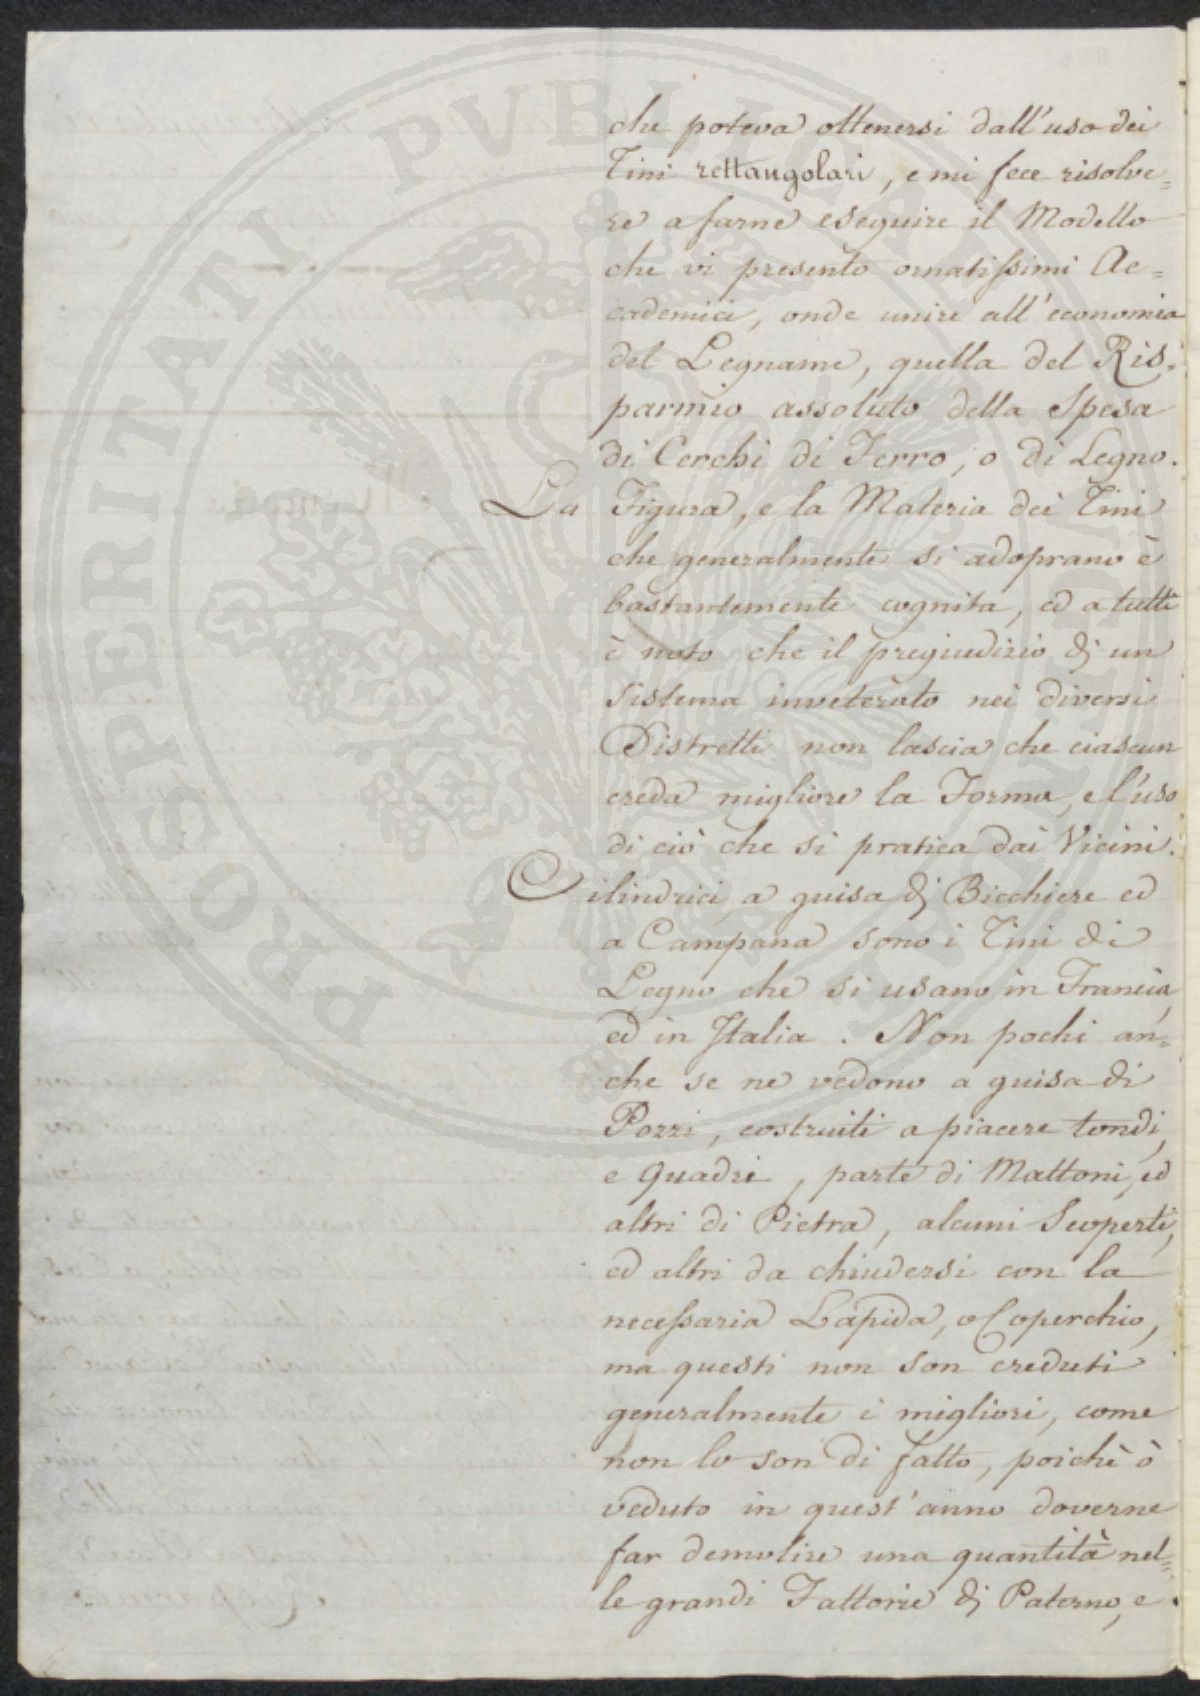 che poteva ottenersi dall'uso dei
Tini rettangolari, e mi fece risolve=
re a farne eseguire il Modello
che vi presento ornatissimi Ac=
cademici, onde unire all'economia
del Legname, quella del Ris=
parmio assoluto della Spesa
di Cerchi di Ferro, o di Legno.
La Figura, e la Materia dei Tini
che generalmente si adoprano è
bastantemente cognita, ed a tutti
è noto che il pregiudizio di un
Sistema inveterato nei diversi
Distretti non lascia che ciascun
creda migliore la Forma, e l'uso
di ciò che si pratica dai Vicini.
Cilindrici, a guisa di Bicchiere ed
a Campana sono i Tini di
Legno che si usano in Francia,
ed in Italia. Non pochi an=
che se ne vedono a guisa di
Pozzi, costruiti a piacere tondi,
e Quadri, parte di Mattoni, ed
altri di Pietra, alcuni Scoperti,
ed altri da chiudersi con la
necessaria Lapida, o Coperchio,
ma questi non son creduti
generalmente i migliori, come
non lo son di fatto, poichè ò
veduto in quest'anno doverne
far demolire una quantità nel=
le grandi Fattorie di Paterno, e
PROSPERITATI PVBLICAE AVGENDAE